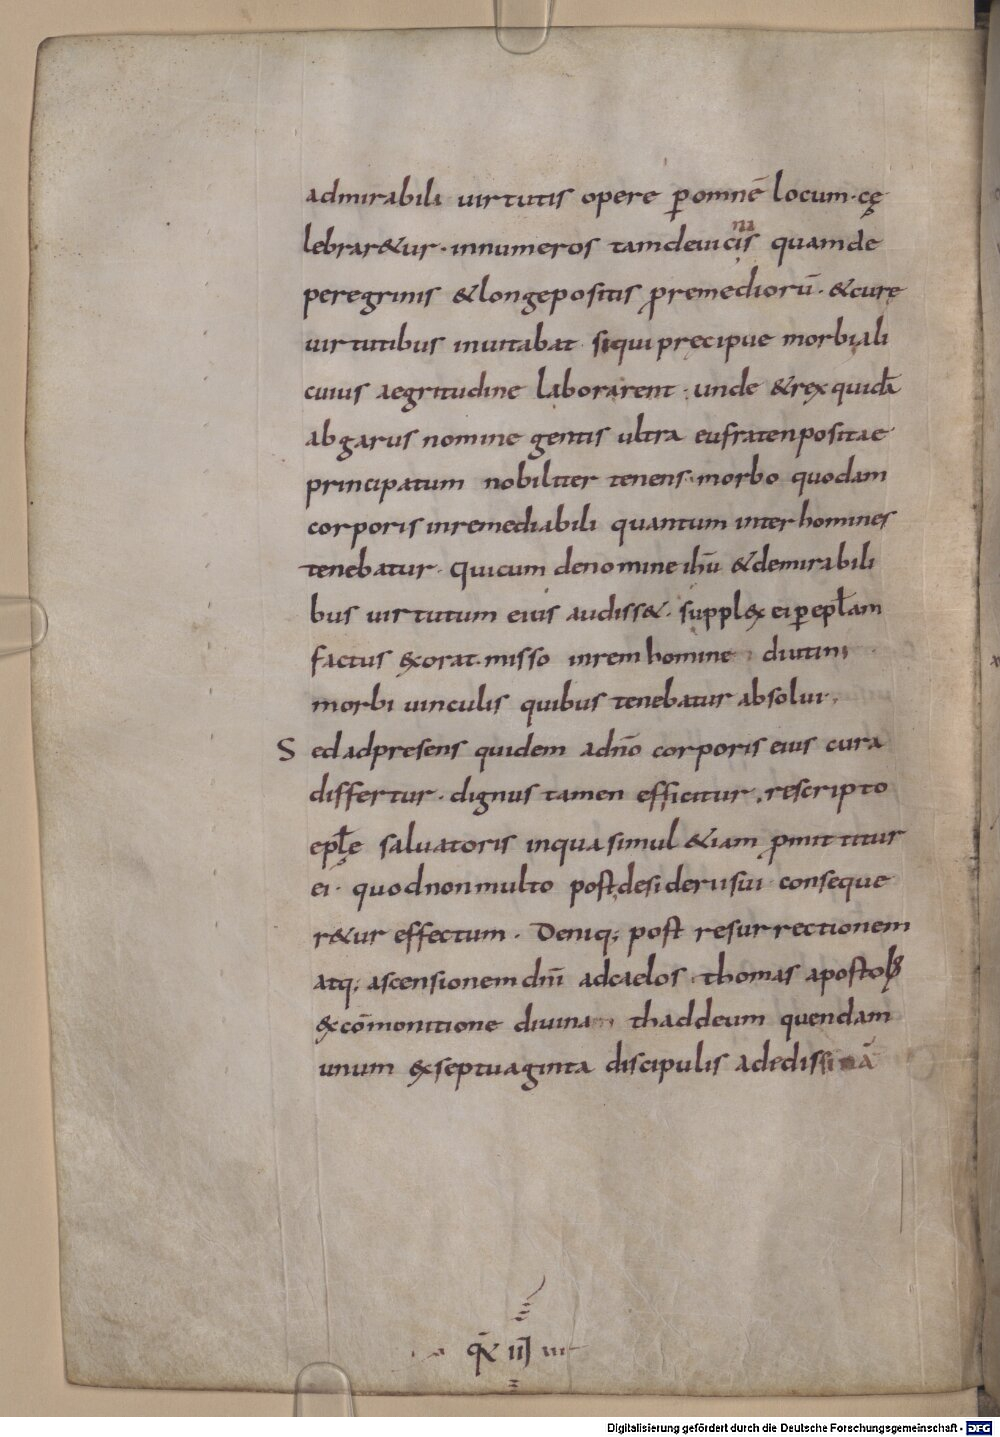 admirabili uirtutis opere ꝑomnē locum · cę
lebrar&ur · innumeros tamdeuicinis quamde
peregrinis &longepositis ꝓremediorū · &curę
uirtutibus inuitabat siqui pręcipue morbi ali
cuius aegritudine laborarent · unde &rex quidā
abgarus nomine gentis ultra eufraten positae
principatum nobiliter tenens · morbo quodam
corporis inremediabili quantum inter homines
tenebatur · Quicum denomine ihū &demirabili
bus uirtutum eius audiss& · supplex ei ꝑepłam
factus exorat · misso inrem homine diutini
morbi uinculis quibus tenebatur absolui ·
Sed adpresens quidem adnō corporis eius cura
differtur · dignus tamen efficitur · rescripto
epłę saluatoris inqua simul &iam ꝓmittitur
ei · quodnonmulto post desiderii sui conseque
r&ur effectum · Deniq; post resurrectionem
atq; ascensionem dnī adcaelos · thomas apostolus
excōmonitione diuina thaddeum quendam
unum exseptuaginta discipulis ad edissinā
q̄ II